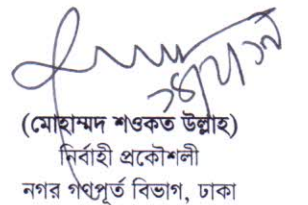 (মোহাম্মদ শওকত উল্লাহ)
নির্বাহী প্রকৌশলী
নগর গণপূর্ত বিভাগ, ঢাকা